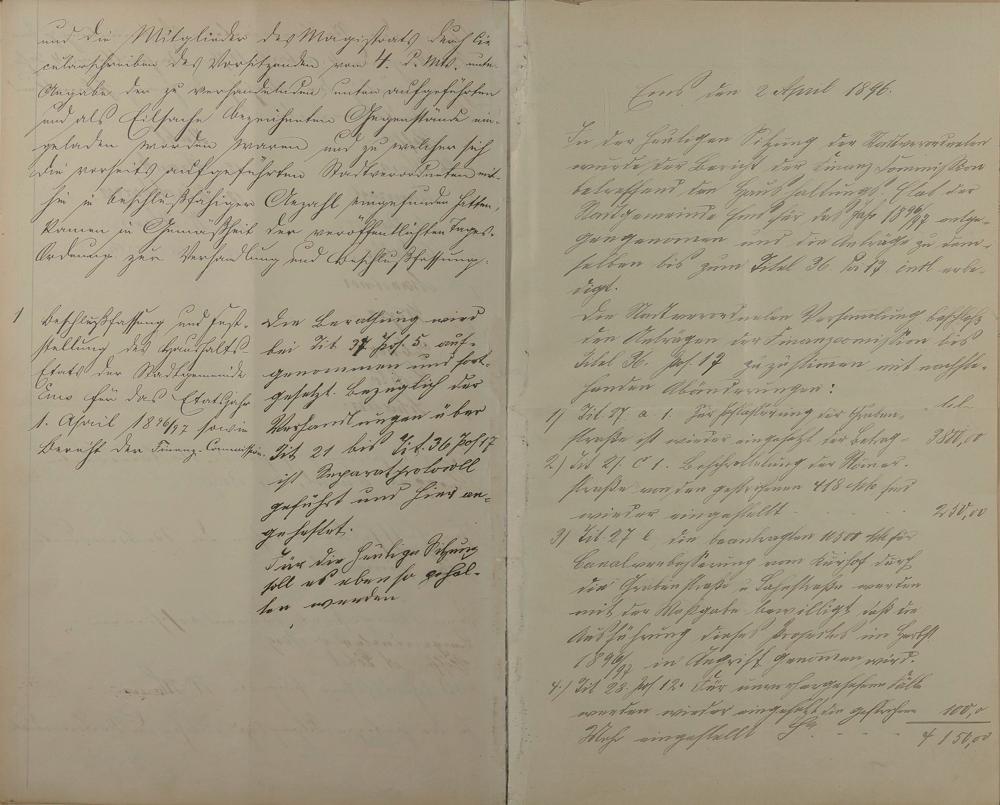 und die Mitglieder des Magistrats durch Cir-
cularschreiben des Vorsitzenden vom 4. d. Mts. unter
Angabe der zu verhandelnden, unten aufgeführten
und als Eilsache bezeichneten Gegenstände ein-
geladen worden waren und zu welcher sich
die vorseits aufgeführten Stadtverordneten mit-
hin in beschlußfähiger Anzahl eingefunden hatten,
kamen in Gemäßheit der veröffentlichten Tages-
Ordnung zur Verhandlung und Beschlußfassung:
1 Beschlußfassung und Fest-
stellung des Haushalts-
Etats der Stadtgemeinde
Ems für das Etatsjahr
1. April 1896/97 sowie
Bericht der Finanz-Commission.
Die Berathung wird
bei Tit. 37 Pos. 5. auf-
genommen und fort-
gesetzt. Bezüglich der
Verhandlungen über
Tit 21 bis Tit. 36 Pos 17
ist Separatprotocoll
geführt und hier an-
geheftet.
Für die heutige Sitzung
soll es ebenso gehal-
ten werden
Ems den 2 April 1896.
In der heutigen Sitzung der Stadtverordneten
wurde der Bericht der Finanz-Commission
betreffend den Haushaltungs-Etat der
Stadtgemeinde Ems für das Jahr 1896/97 entge-
gengenommen und die Anträge zu dem-
selben bis zum Titel 36 Pos 17 incl erle-
digt.
Die Stadtverordneten Versammlung beschloß
den Anträgen der Finanzcommission bis
Titel 36. Pos. 17 zuzustimmen mit nachste-
henden Abänderungen:
1) Tit 27 a 1. Zur Pflasterung der Graben-
straße ist wieder eingesetzt der Betrag 3800,00
2) Tit 27 c 1. Beschotterung der Römer-
straße von den gestrichenen 418 Mk sind
wieder eingestellt 250,00
3) Tit 27 e, die beantragten 11500 Mk für
Canalverbesserung vom Kurhof durch
die Grabenstraße u Lahnstraße werden
mit der Maßgabe bewilligt daß die
Ausführung dieses Projectes im Herbst
1896/97 in Angriff genommen wird.
4.) Tit 28. Pos 12. Für unvorhergesehene Fälle
werden wieder eingesetzt die gestrichenen 100,0
Mehr eingestellt 4150,00